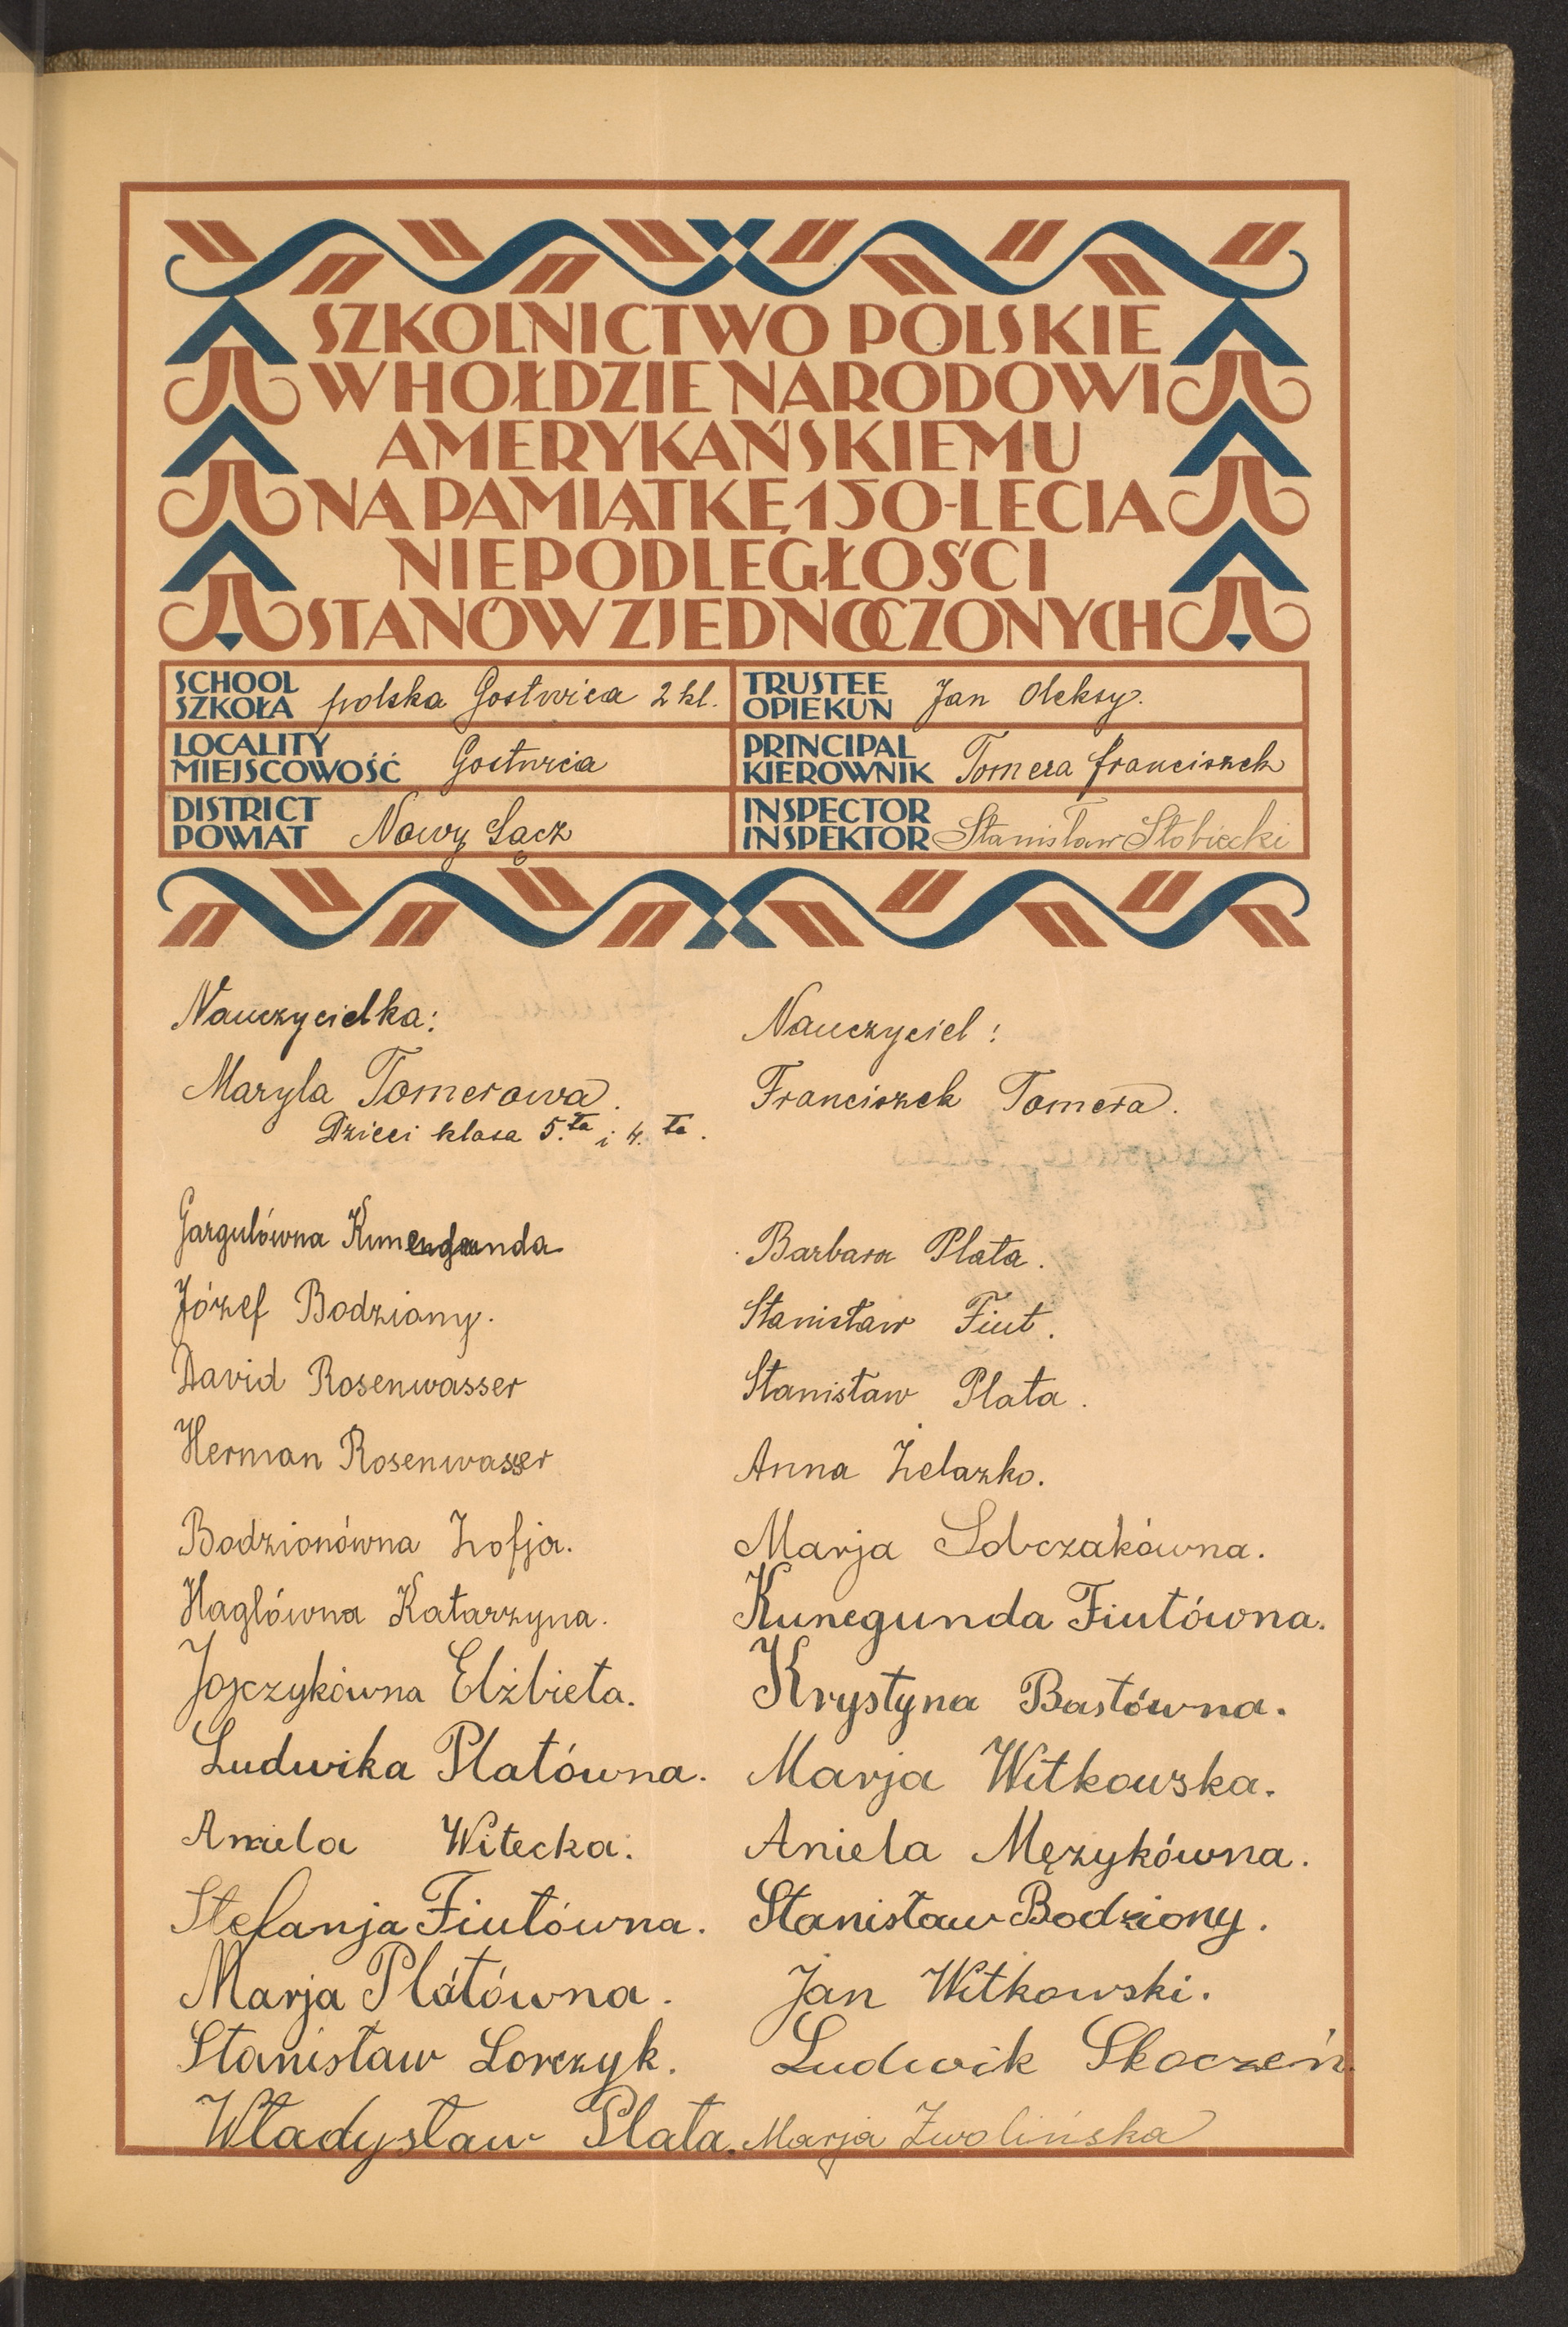 SZKOLNICTWO POLSKIE
W HOŁDZIE NARODOWI
AMERYKAŃSKIEMU
NA PAMIĄTKĘ 150-LECIA
NIEPODLEGŁOŚCI
STANÓW ZJEDNOCZONYCH
SCHOOL
SZKOŁA polska Gostwica 2 kl.
TRUSTEE
OPIEKUN Jan Oleksy.
LOCALITY
MIEJSCOWOŚĆ Gostwica
PRINCIPAL
KIEROWNIK Tomera Franciszek
DISTRICT
POWIAT Nowy Sącz
INSPECTOR
INSPEKTOR Stanisław Słobiecki
Nauczycielka:
Maryla Tomerowa.
Dzieci klasa 5.ta i 4.ta.
Gargulówna
Józef Bodziony.
David Rosenwasser
Herman Rosenwasser
Bodzionówna Zofja.
Haglówna Katarzyna.
Jojczykówna Elżbieta.
Ludwika Platówna.
Aniela Witecka.
Stefanja Fiutówna.
Marja Platówna.
Stanisław Lorczyk.
Władysław Plata.
Nauczyciel:
Franciszek Tomera.
Barbara Plata.
Stanisław Fiut.
Stanisław Plata.
Anna Żelazko.
Marja Sobczakówna.
Kunegunda Fiutówna.
Krystyna Bastówna.
Marja Witkowska.
Aniela Mężykówna.
Stanisław Bodziony.
Jan Witkowski.
Ludwik Skoczeń.
Marja Zwolińska